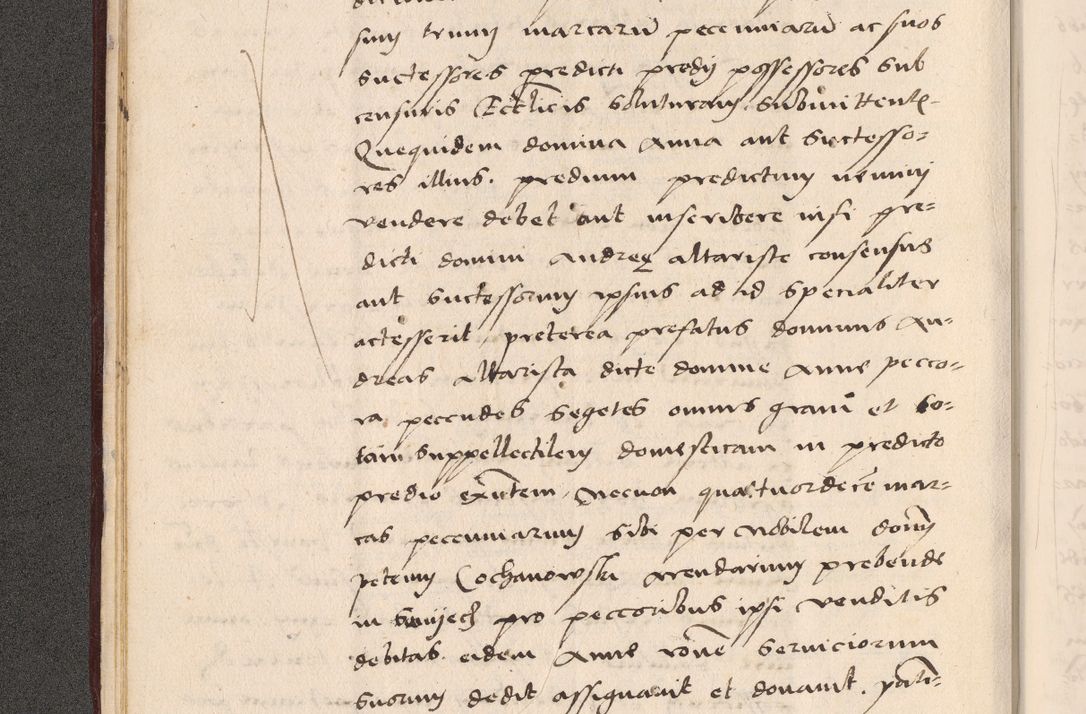 sum trium marcarū pecuniarū ac suos
successores predicti predij possessores sub
censuris Eccl̄icis soluturam submittente.
Quequidem domina Anna aut successo=
res illius. predium predictum nemini
vendere debet aut inscribere nisi pre=
dicti domini Andreę altariste consensus
aut successorum ipsius ad id specialiter
accesserit, preterea prefatus dominus An=
dreas altarista dicte domine Anne pecco=
ra peccudes segetes omnis granī et to=
tam suppellectilem domesticam in predicto
predio exn̄tem, Necnon quattuordecē mar=
cas pecuniarum sibi per Nobilem dom̄
petrum Cochanowski Arendarium prebende
in pro peccoribus ipsi venditis
debitas eidem Anne rōne seruiciorum
suorum dedit assignauit et donauit.